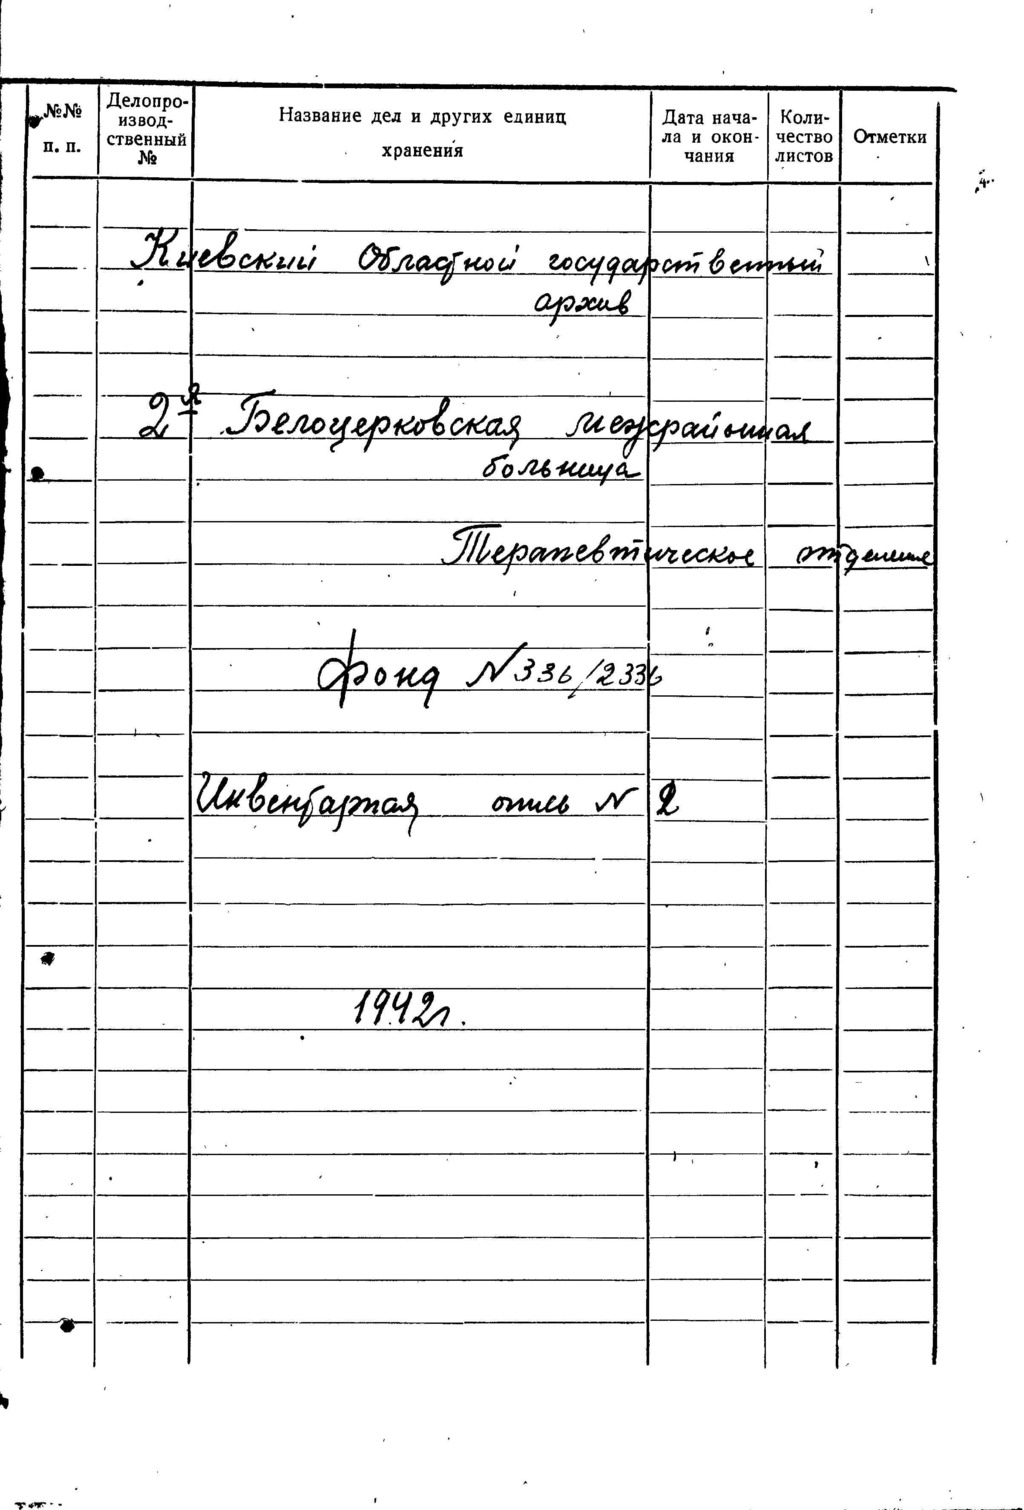 №№ п. п.
Делопро-
извод-
ственный
№
Название дел и других единиц
хранения
Дата нача-
ла и окон-
чания
Коли-
чество
листов
Отметки
Киевский Областной государственный
архив
2я Белоцерковская межрайонная
больница
Терапевтическое отделение
Фонд N 336/2336
Инвентарная опись N 2
1942г.